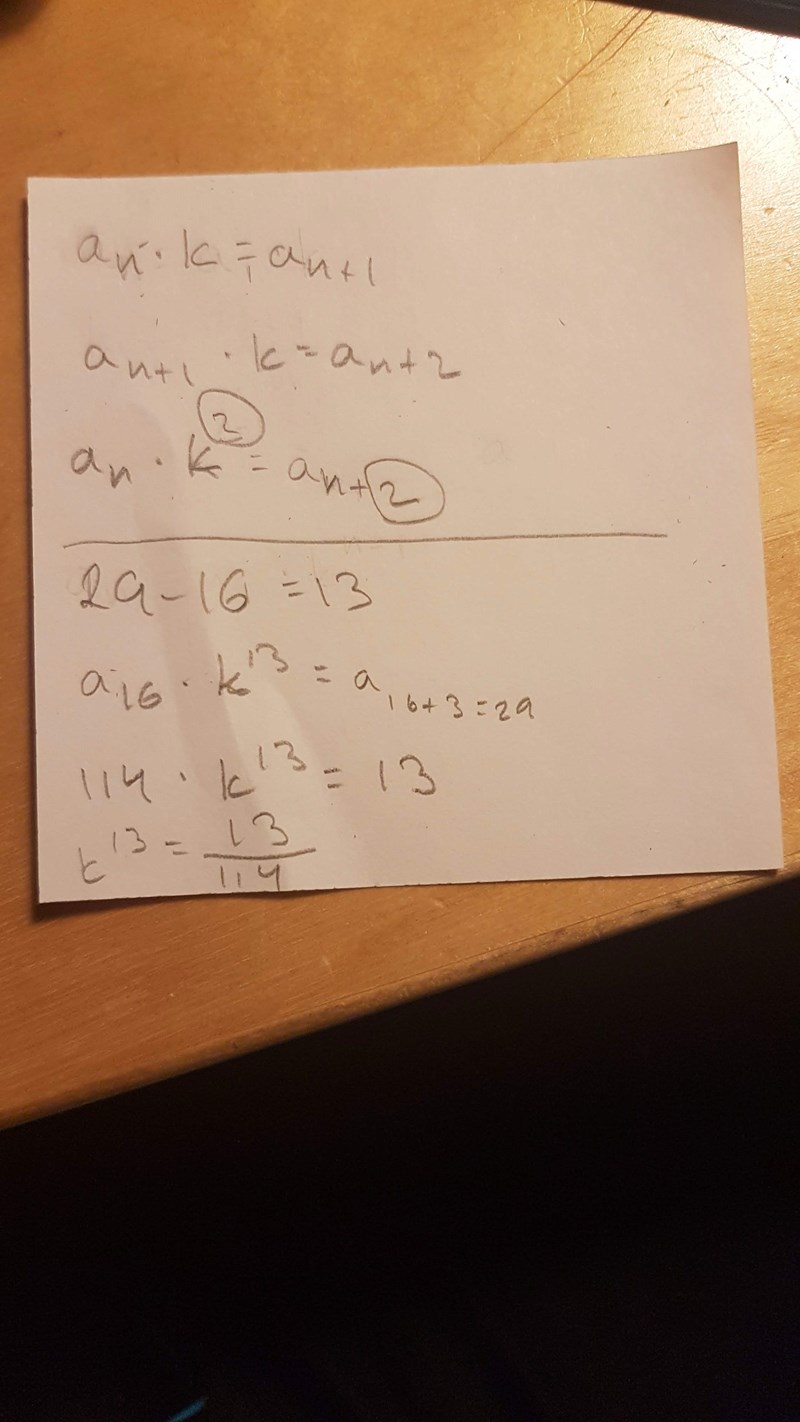 aₙ · k = aₙ₊₁
aₙ₊₁ · k = aₙ₊₂
aₙ · k² = aₙ₊₂
29 - 16 = 13
a₁₆ · k¹³ = a₁₆₊₃₌₂₉
114 · k¹³ = 13
k¹³ = 13/114